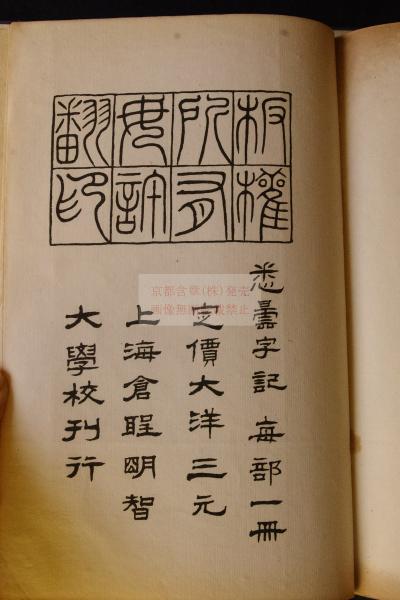 板權
所有
毋許
翻印
悉曇字記 每部一冊
定價大洋三元
上海倉聖明智
大學校刊行
京都含章(株)発売
画像無断転載禁止